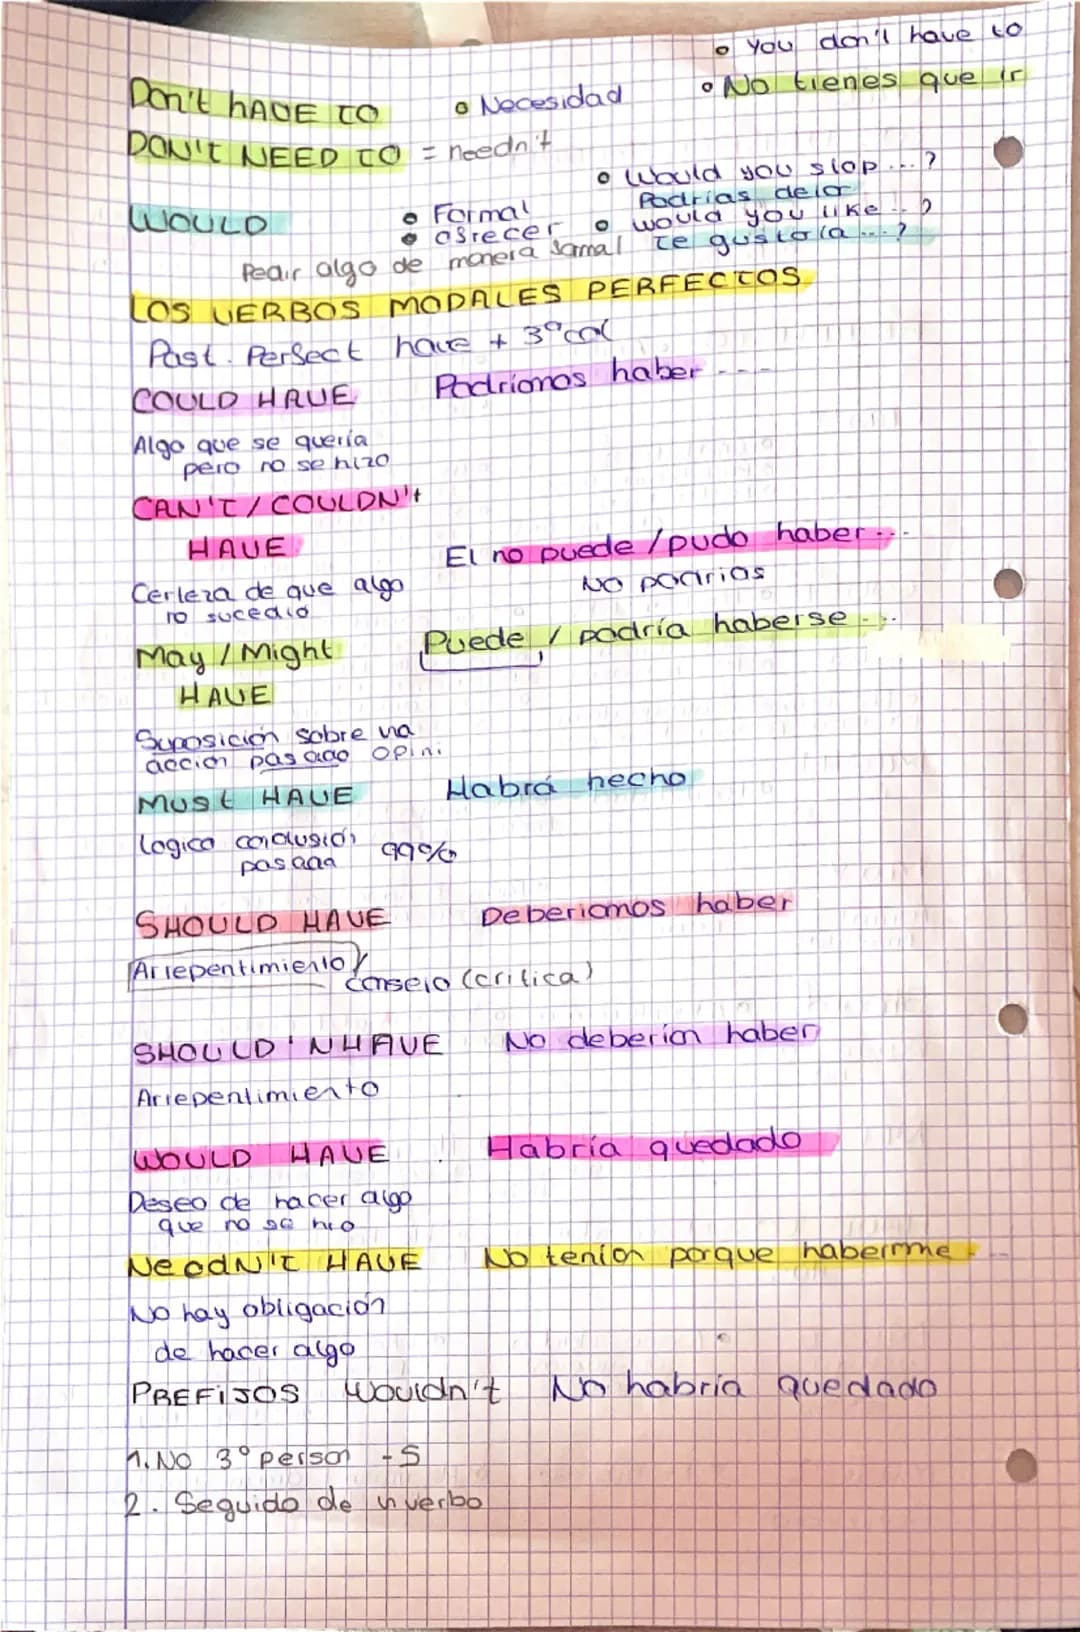 • You don't have to
DON'T HAVE TO • Necesidad • No tienes que ir
DON'T NEED TO = needn't
• Would you stop ...?
Podrías dejar
WOULD • Formal • would you like ..?
• ofrecer Te gustaría ...?
Pedir algo de manera formal
LOS VERBOS MODALES PERFECTOS
Past. Perfect have + 3ª col
COULD HAVE Podríamos haber ---
Algo que se quería
pero no se hizo
CAN'T / COULDN't
HAVE El no puede / pudo haber...
Certeza de que algo No podrías
no sucedió
May / Might Puede / podría haberse ...
HAVE
Suposición sobre una
acción pasado opini.
MUSt HAVE Habrá hecho
logica conclusión 99%
pasada
SHOULD HAVE Deberiamos haber
Arrepentimiento /
consejo (critica)
SHOULD'NHAVE No deberían haber
Arrepentimiento
WOULD HAVE Habría quedado
Deseo de hacer algo
que no se hizo
NeedN'T HAVE No tenían porque haberme ...
No hay obligación
de hacer algo
PREFIJOS Wouldn't No habría quedado
1. No 3º person -S
2. Seguido de verbo